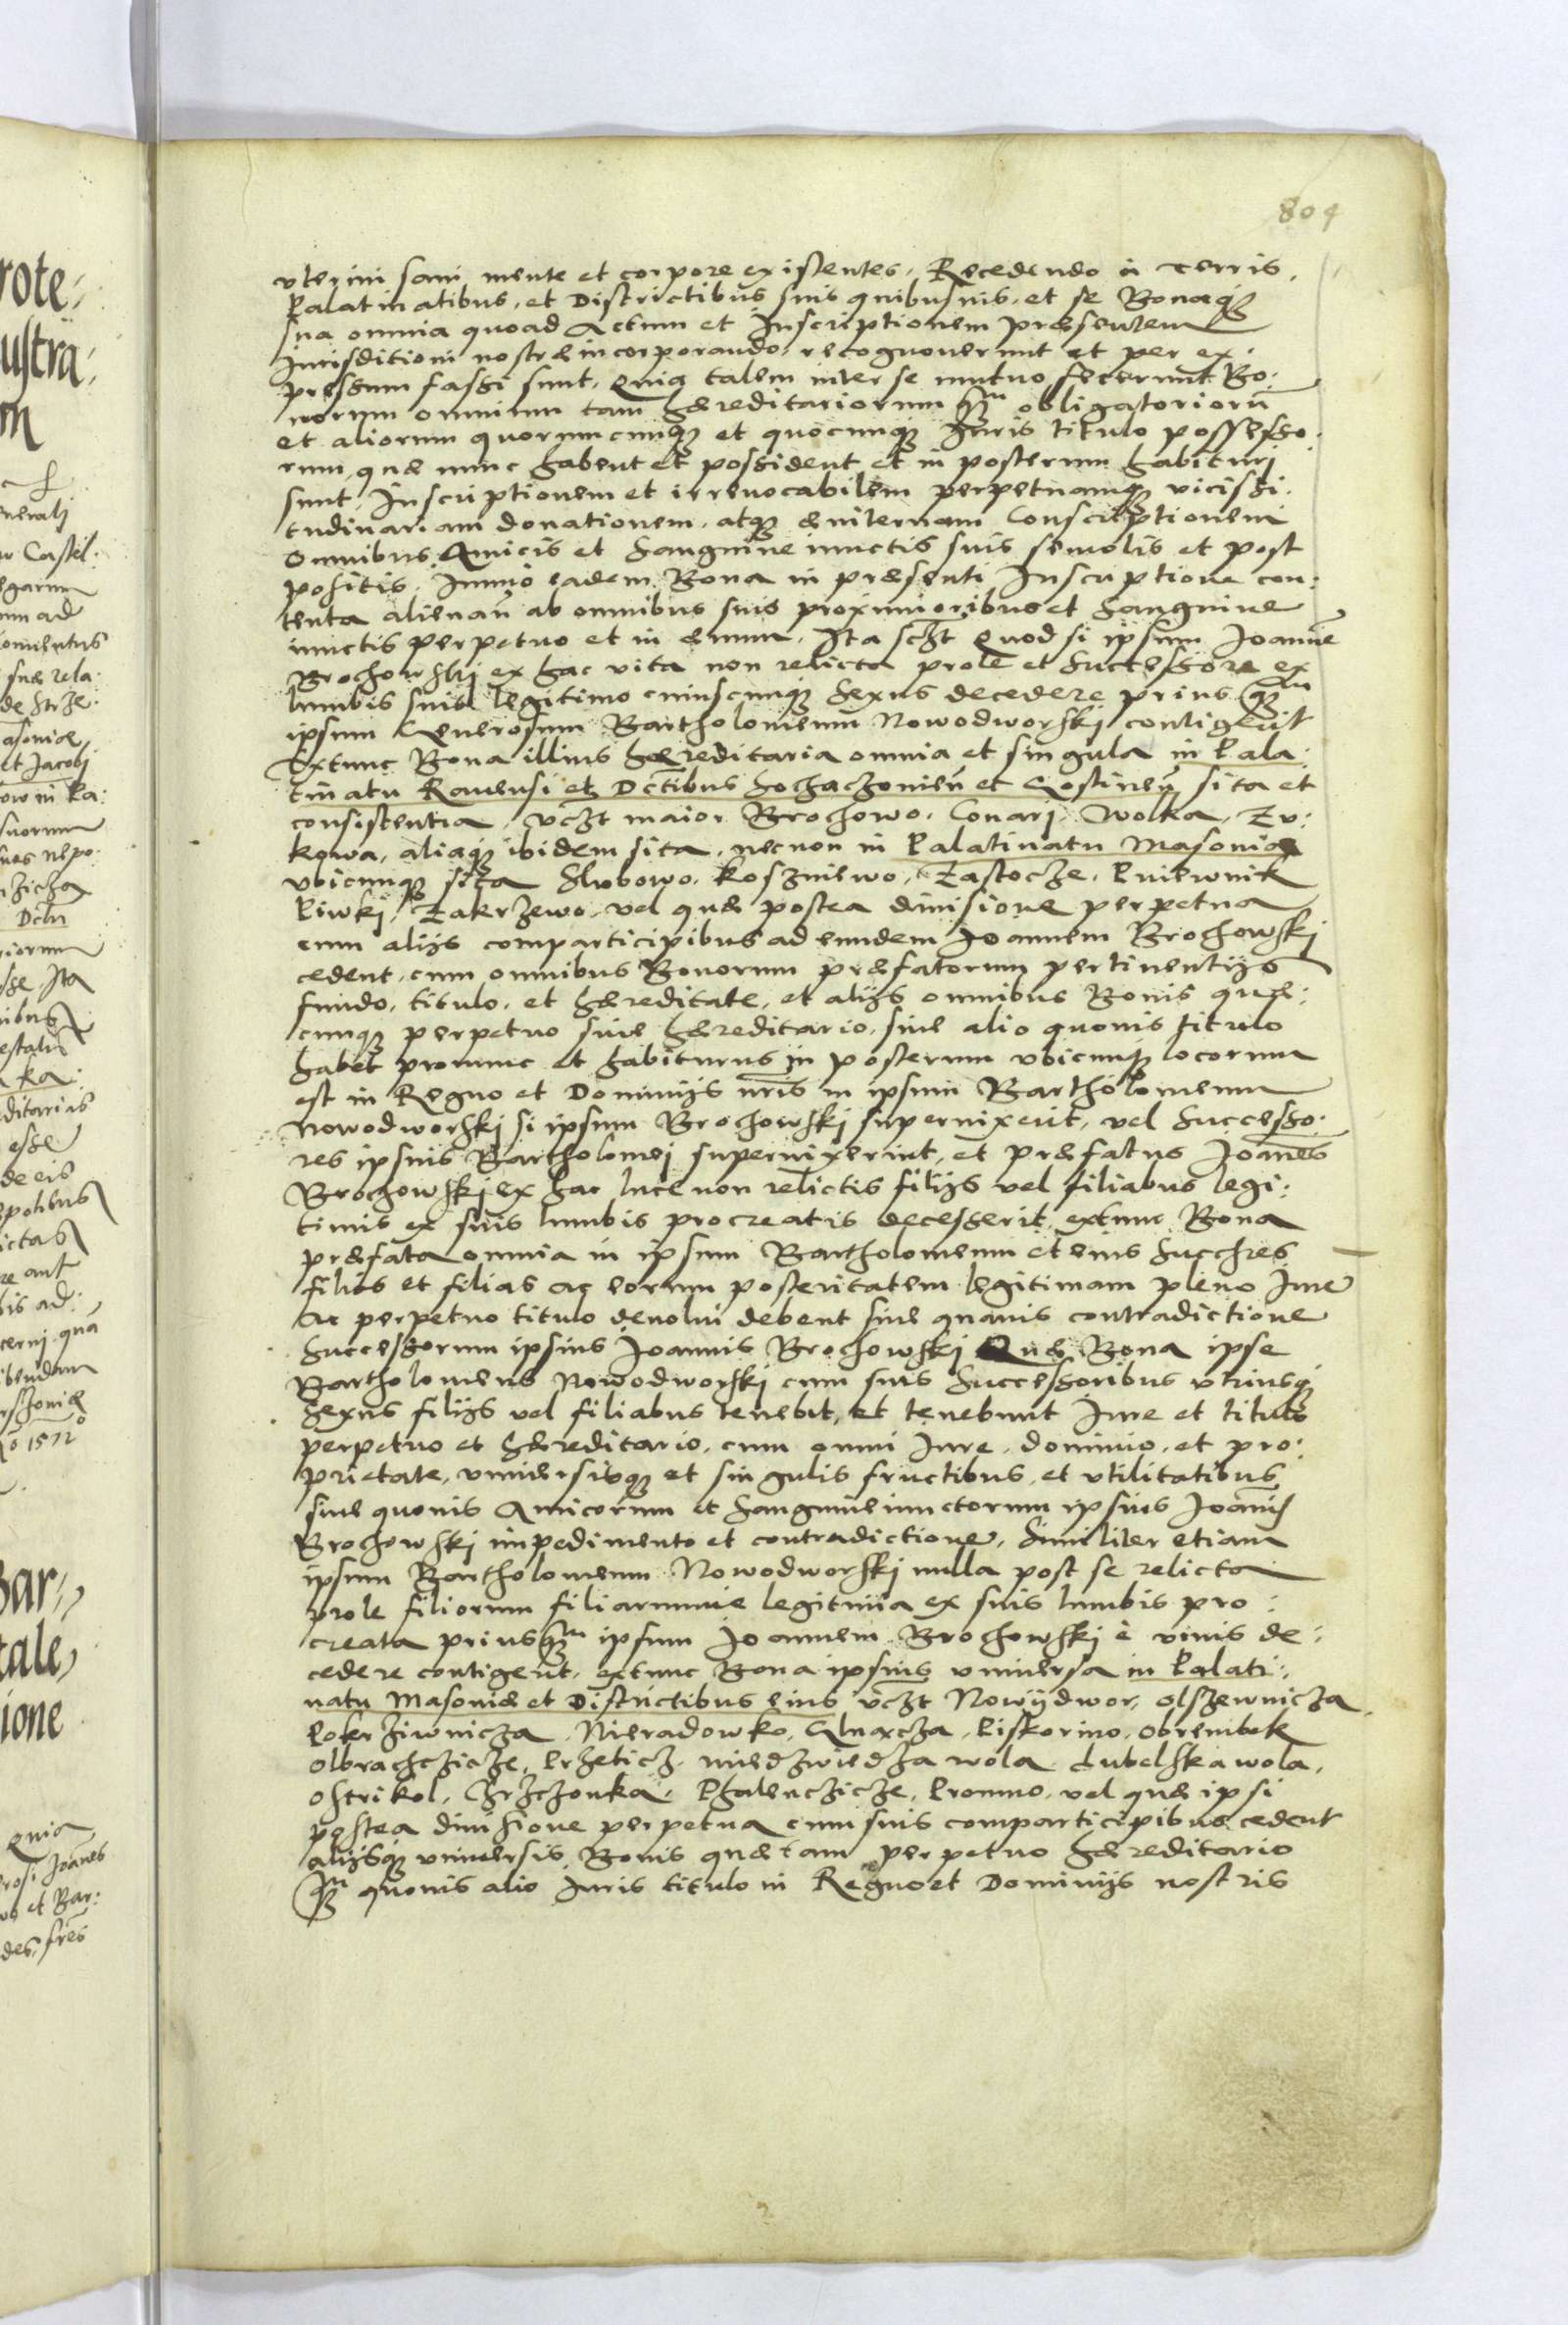 804
vterini sani mente et corpore existentes, Recedendo à Terris,
Palatinatibus, et Districtibus suis quibusuis, et se Bonaq3
sua omnia quoad Actum et Inscriptionem præsentem
Iurisditioni nostræ incorporando, recognouerunt et per ex:
pressum fassi sunt, Quia talem inter se mutuo fecerunt Bo:
norum omnium tam hæreditariorum q̃m obligatoriorũ
et aliorum quorumcunq3 et quocunq3 Iuris titulo possesso:
rum, quæ nunc habent et possident et in posterum habituri
sunt, Inscriptionem et irreuocabilem perpetuamq3 vicissi:
tudinariam donationem, atq3 æuiternam Conscriptionem
Omnibus Amicis et Sanguine iunctis suis semotis et post
positis, Immò eadem Bona in præsenti Inscriptione con:
tenta alienañ ab omnibus suis proximioribus et Sanguine
iunctis perpetuo et in æuum, Ita sc3t Quod si ipsum Joannẽ
Brochowskj ex hac vita non relicta prole et Successore ex
lumbis suis legitimo cuiuscunq3 Sexus decedere prius q̃m
ipsum Generosum Bartholomeum Nowodworskj contigerit
Extunc Bona illius hæreditaria omnia et singula in Pala:
tinatu Rauensi et Dctibus Sochaczouieñ et Gostineñ sita et
consistentia, vc3t maior Brochowo, Conarj, Wolka, Zu:
kowa, aliaq3 ibidem sita, necnon in Palatinatu Masouiæ
vbicunq3 sita Slubowo, Koszniewo, Zastocze, Pniewnik
Piwkj, Zakrzewo, vel quæ postea diuisione perpetua
cum alijs comparticipibus ad eundem Joannem Brochowskj
cedent, cum omnibus Bonorum præfatorum pertinentijs
fundo, titulo, et hæreditate, et alijs omnibus Bonis quæ:
cunq3 perpetuo siue hæreditario, siue alio quouis titulo
habet pronunc et habiturus in posterum vbicunq3 locorum
est in Regno et Dominijs nr̃is in ipsum Bartholomeum
Nowodworskj si ipsum Brochowskj superuixerit, vel Successo:
res ipsius Bartholomej superuixerint, et præfatus Joannes
Brochowskj ex hac luce non relictis filijs vel filiabus legi:
timis ex suis lumbis procreatis decesserit, extunc Bona
præfata omnia in ipsum Bartholomeum et eius Succħres
filios et filias ac eorum posteritatem legitimam pleno Iure
ac perpetuo titulo deuolui debent sine quauis contradictione
Successorum ipsius Joannis Brochowskj Quæ Bona ipse
Bartholomeus Nowodworskj cum suis Successoribus vtriusq3
Sexus filijs vel filiabus tenebit, et tenebunt Iure et titulo
perpetuo et hæreditario, cum omni Iure, dominio, et pro:
prietate, vniuersisq3 et singulis fructibus, et vtilitatibus
sine quouis Amicorum et Sanguineiunctorum ipsius Joannis
Brochowskj impedimento et contradictione, Similiter etiam
ipsum Bartholomeum Nowodworskj nulla post se relicta
prole filiorum filiarumue legitima ex suis lumbis pro:
creata priusq̃m ipsum Joannem Brochowskj è viuis de:
cedere contigerit, extunc Bona ipsius vniuersa in Palati:
natu Masouiæ et Districtibus eius vc3t Nowydwor, Olszewnicza
Pokrziwnicza, Nieradowko, Gluxcza, Piskorino, Obrembek
Olbrachczicze, Przeticz, Niedzwiedza wola, Lubelska wola,
Ostrikol, Chrzczonka, Phalenczicze, Promno, vel quæ ipsi
postea diuisione perpetua cum suis comparticipibus cedent
alijsq3 vniuersis Bonis quæ tam perpetuo hæreditario
q̃m quouis alio Iuris titulo in Regno et Dominijs nostris